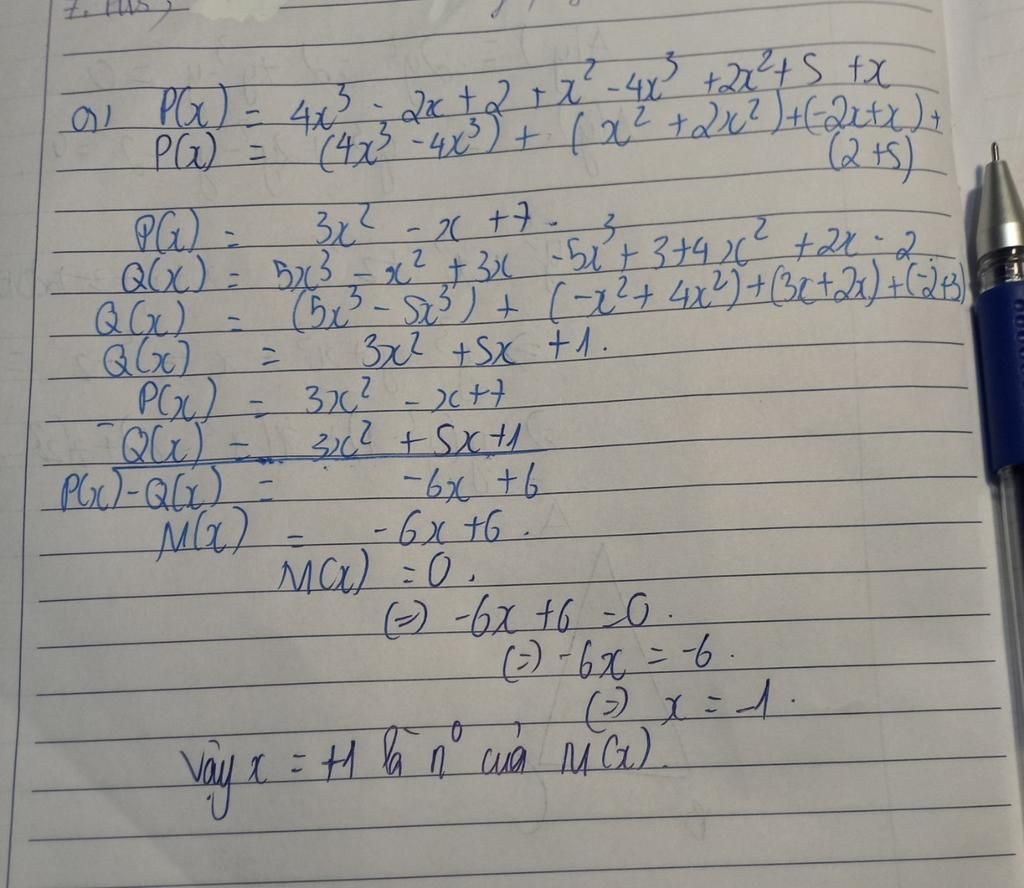 a) P(x) = 4x³ - 2x + 2 + x² - 4x³ + 2x² + 5 + x
P(x) = (4x³ - 4x³) + (x² + 2x²) + (-2x + x) +
(2 + 5)
P(x) = 3x² - x + 7.
Q(x) = 5x³ - x² + 3x - 5x³ + 3 + 4x² + 2x - 2.
Q(x) = (5x³ - 5x³) + (-x² + 4x²) + (3x + 2x) + (-2+3)
Q(x) = 3x² + 5x + 1.
P(x) = 3x² - x + 7
- Q(x) = 3x² + 5x + 1
P(x) - Q(x) = -6x + 6
M(x) = -6x + 6.
M(x) = 0.
(=) -6x + 6 = 0.
(=) -6x = -6.
(=) x = -1.
Vậy x = +1 là n⁰ của M(x).